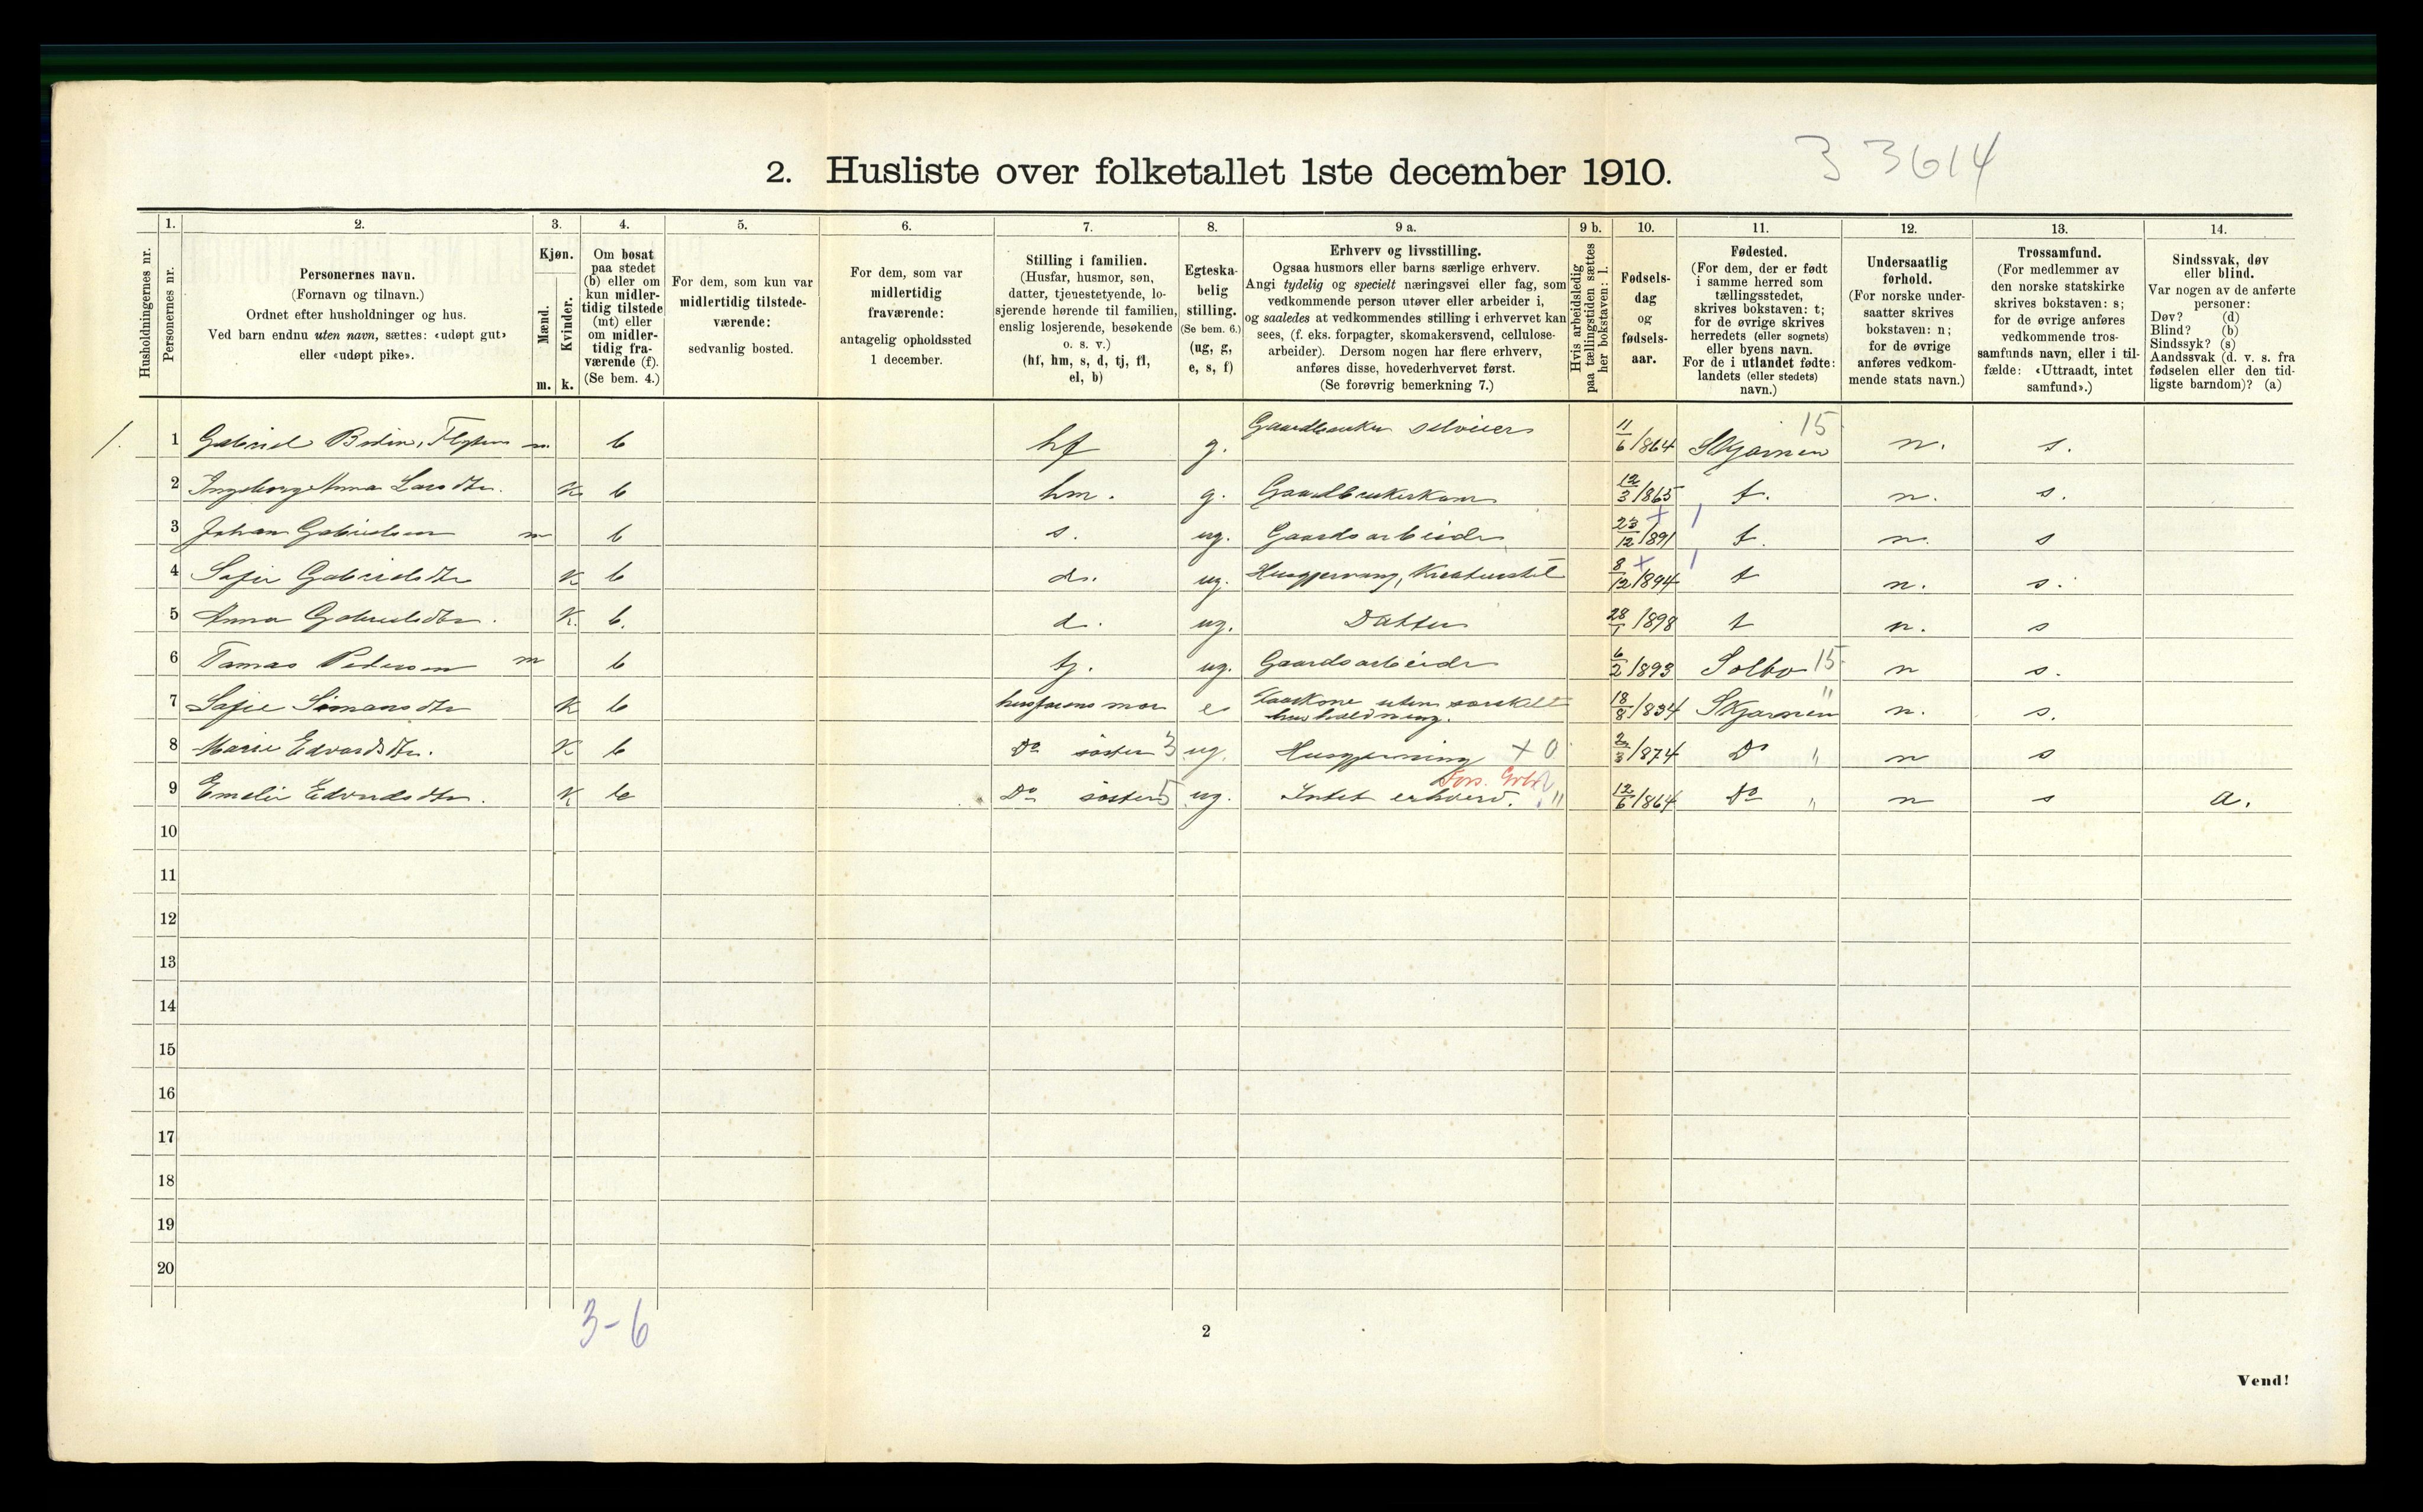 2. Husliste over folketallet 1ste december 1910.
3 3614
Husholdningernes nr.
1.
Personernes nr.
2.
Personernes navn.
(Fornavn og tilnavn.)
Ordnet efter husholdninger og hus.
Ved barn endnu uten navn, sættes: «udøpt gut»
eller «udøpt pike».
3.
Kjøn.
Mænd.
Kvinder.
m. k.
4.
Om bosat
paa stedet
(b) eller om
kun midler-
tidig tilstede
(mt) eller
om midler-
tidig fra-
værende (f).
(Se bem. 4.)
5.
For dem, som kun var
midlertidig tilstede-
værende:
sedvanlig bosted.
6.
For dem, som var
midlertidig
fraværende:
antagelig opholdssted
1 december.
7.
Stilling i familien.
(Husfar, husmor, søn,
datter, tjenestetyende, lo-
sjerende hørende til familien,
enslig losjerende, besøkende
o. s. v.)
(hf, hm, s, d, tj, fl,
el, b)
8.
Egteska-
belig
stilling.
(Se bem. 6.)
(ug, g,
e, s, f)
9 a.
Erhverv og livsstilling.
Ogsaa husmors eller barns særlige erhverv.
Angi tydelig og specielt næringsvei eller fag, som
vedkommende person utøver eller arbeider i,
og saaledes at vedkommendes stilling i erhvervet kan
sees, (f. eks. forpagter, skomakersvend, cellulose-
arbeider). Dersom nogen har flere erhverv,
anføres disse, hovederhvervet først.
(Se forøvrig bemerkning 7.)
9 b.
Hvis arbeidsledig
paa tællingstiden sættes
her bokstaven: l.
10.
Fødsels-
dag
og
fødsels-
aar.
11.
Fødested.
(For dem, der er født
i samme herred som
tællingsstedet,
skrives bokstaven: t;
for de øvrige skrives
herredets (eller sognets)
eller byens navn.
For de i utlandet fødte:
landets (eller stedets)
navn.)
12.
Undersaatlig
forhold.
(For norske under-
saatter skrives
bokstaven: n;
for de øvrige
anføres vedkom-
mende stats navn.)
13.
Trossamfund.
(For medlemmer av
den norske statskirke
skrives bokstaven: s;
for de øvrige anføres
vedkommende tros-
samfunds navn, eller i til-
fælde: «Uttraadt, intet
samfund».)
14.
Sindssvak, døv
eller blind.
Var nogen av de anførte
personer:
Døv? (d)
Blind? (b)
Sindssyk? (s)
Aandssvak (d. v. s. fra
fødselen eller den tid-
ligste barndom)? (a)
1. 1 Gabriel m b hf g. Gaardbruker selveier 11/6/1864 15 n. s.
2 Ingeborg Anna Larsdtr. K b hm. g. Gaardbrukerkone 12/3/1865 t. n. s.
3 Johan Gabrielsen m b s. ug. Gaardsarbeider 23/12/1891 t. n. s
4 Sofie Gabrielsdtr K b d. ug. Husgjerning, Kreaturstel 8/12/1894 t n. s.
5 Anna Gabrielsdtr. K. b. d. ug. Datter 28/1/1898 t n. s
6 Tomas Pedersen m b tj. ug. Gaardsarbeider 6/2/1893 15 n s.
7 Sofie Simonsdtr K b husfarens mor e uten særskilt husholdning. 18/8/1834 " n. s.
8 Marie Edvardsdtr. K b Do søster 3 ug. Husgjerning + 0 2/3/1874 Do " n s
9 Emelie Edvardsdtr. K b Do søster 5 ug. Intet erhverv. " 12/6/1864 Do " n s a.
10
11
12
13
14
15
16
17
18
19
20
3-6
2
Vend!